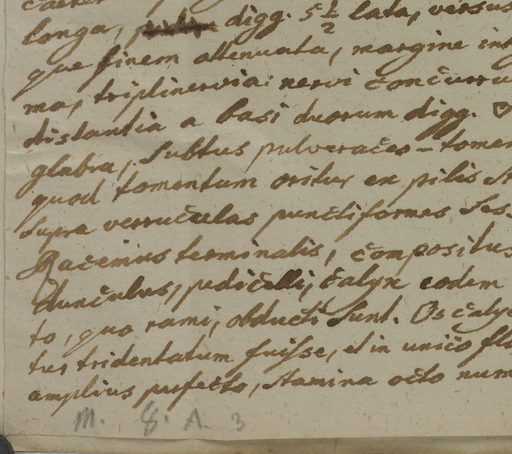 longa, digg. 5½ lata, versus
que finem attenuata, margine int
ma, triplinervia: nervi concurru
distantia a basi duorum digg.
glabra, Subtus pulveraceo-tomen
quod tomentum oritur ex pilis st
supra verruculas punctiformes ses
Racemus terminalis, compositus
dunculus, pedicelli, calyx eodem
to, quo rami, obducti sunt. Os caly
tus tridentatum fuisse, et in unico flo
amplius perfecto, stamina octo num
M. 8. A. 3